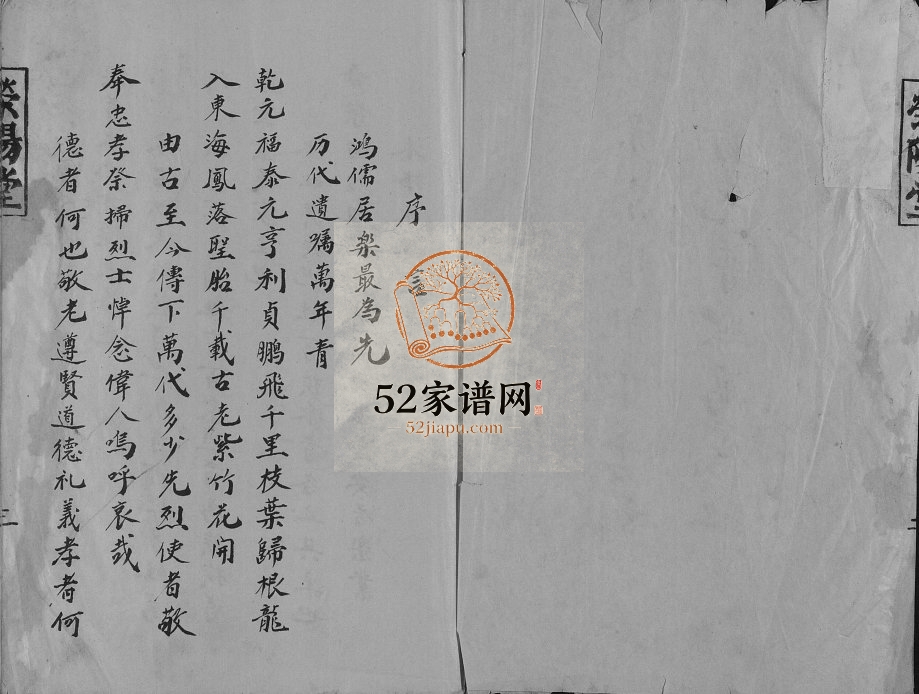 序
鸿儒居楽最為先
历代遺嘱萬年青
乾元福泰元亨利貞鹏飛千里枝葉歸根龍
入東海鳳落聖胎千載古老紫竹花開
由古至今傳下萬代多少先烈使者敬
奉忠孝祭掃烈士悼念偉人嗚呼哀哉
德者何也敬老遵賢道德礼義孝者何
荥陽堂
二
52家谱网
52jiapu.com